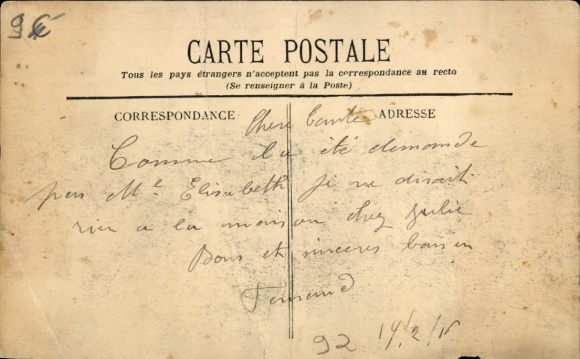 9€
CARTE POSTALE
Tous les pays étrangers n'acceptent pas la correspondance au recto
(Se renseigner à la Poste)
CORRESPONDANCE
ADRESSE
Chere tante
Comme il a été demande
par Mle Elisabeth Je ne dirait
rien a la maison chez Julie
Bons et sinceres baiser
Fernand
92 14/2/16